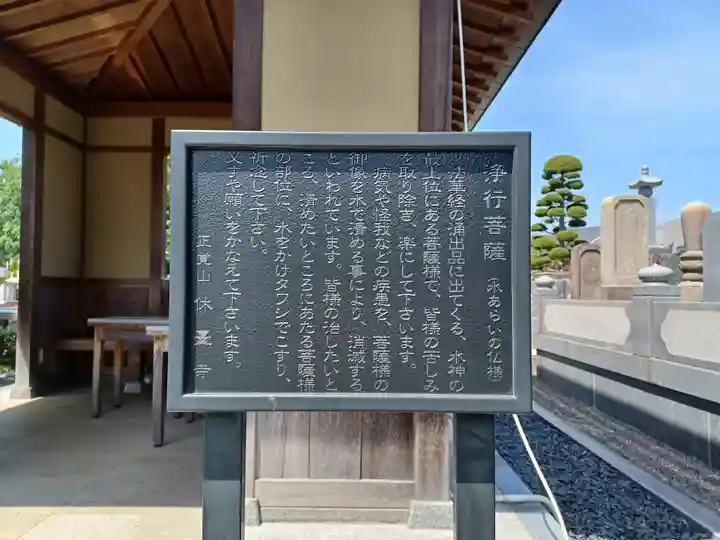 浄行菩薩(水あらいの仏様)
法華経の涌出品に出てくる、水神の
最上位にある菩薩様で、皆様の苦しみ
を取り除き、楽にして下さいます。
病気や怪我などの疾患を、菩薩様の
御像を水で清める事により、消滅する
といわれています。皆様の治したいと
ころ、清めたいところにあたる菩薩様
の部位に、水をかけタワシでこすり、
祈念して下さい。
又すや願いをかなえて下さいます。
正覚山 休 寺